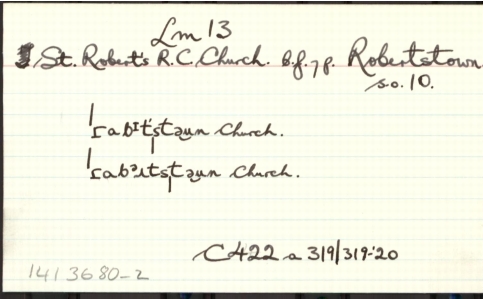 Lm 13
St. Robert's R.C. Church. b.f. 7 p. Robertstown
so. 10.
Church.
Church.
C422 a 319/319-'20
1413680-2